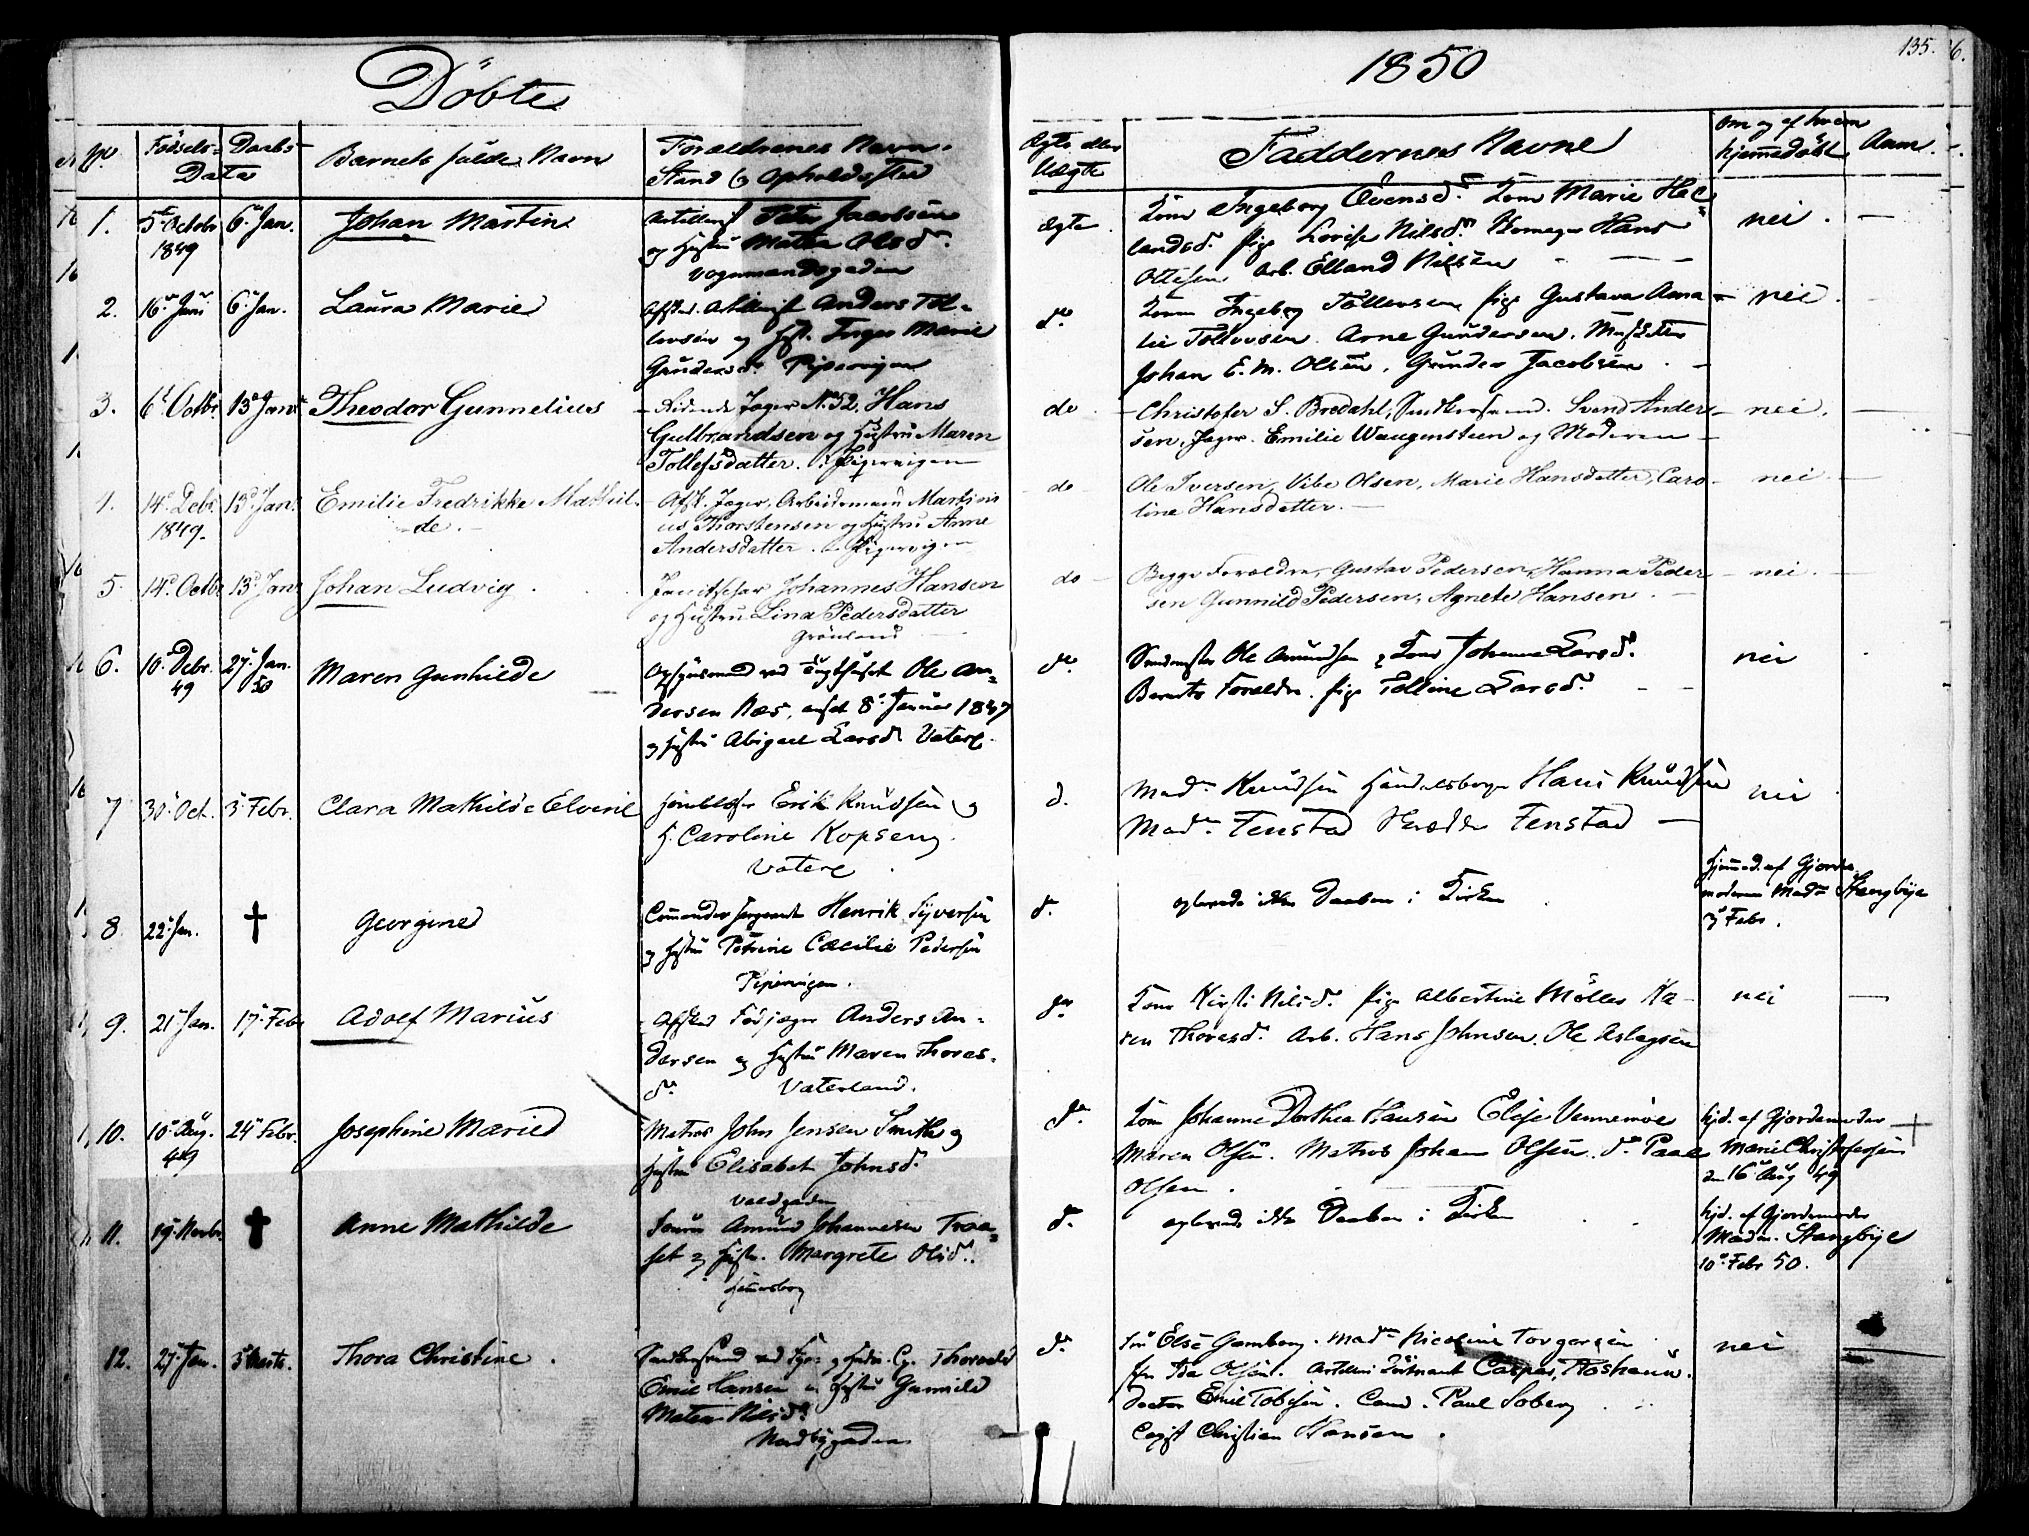 Döbte
1850
135.
6.
No.
Födsels-
Daabs
Data
Barnets fulde Navn
Forældrenes Navn.
Stand og Opholdssted
Ægte eller
Uægte
Faddernes Navne
Om og af hvem
hjemmedöbt
Anm.
1.
5t Octobr
1849
6t Jan.
Johan Martin
Artillerist Peter Jacobsen
og Hustru Mathea Olsd.
Vognmandsgaden
ægte.
Kone Ingeborg Evensd. Kone Marie Hel-
landsd. Pige Lovise Nilsd. Hans
Ottesen Arb. Elland Nilsen
nei.
2.
16. Juni
6. Jan.
Laura Marie
Afsked. Artillerist Anders Tol-
levsen og Hst. Inger Marie
Gundersd. Pipervigen
do.
Kone Ingeborg Tollevsen, Pige Gustava Ama-
lie Tollevsen. Arne Gundersen.
Johan E. M. Olsen, Gunder Jacobsen.
nei.
3.
6t Octbr
13t Janr
Theodor Gunnelius
Ridende Jæger No. 52, Hans
Gulbrandsen og Hustru Maren
Tollefsdatter. i Pipervigen
do
Christofer S. Bredahl, Svend Ander-
sen, Jæger. Emilie Waugensteen og Moderen
nei.
4.
14d Debr.
1849.
13d Janr
Emilie Fredrikke Mathil-
de.
Afsk. Jæger, Arbeidsmand Martini-
us Thorstensen og Hustru Anne
Andersdatter. Pipervigen
do
Ole Iversen, Vibe Olsen, Marie Hansdatter, Caro-
line Hansdatter.
nei.
5.
14d Octbr
13d Janr
Johan Ludvig.
Janitschar Johannes Hansen
og Hustru Lina Pedersdatter
Grönland
do
Begge Forældre, Gustav Pedersen, Hanna Peder-
sen Gunnild Pedersen, Agnete Hansen.
nei.
6.
10. Debr.
49
27. Jan.
50
Maren Gunhilde
Opsynsmand ved Tugthuset Ole An-
dersen Næs, ansat 8. Januar 1847
og Hustru Abigael Larsd. Vaterl.
do.
Ole Amundsen, Kone Johanne Larsd.
Barnets Forældre. Pige Polline Larsd.
nei
7
30. Oct.
3. Febr.
Clara Mathilde Elvine
Erik Knudsen og
H. Caroline Kopseng.
Vaterl.
d.
Mad. Knudsen Handelsborger Hans Knudsen
Mad. Fenstad Fenstad
nei
8
22. Jan.
†
Georgine
Commandersergeant Henrik Syversen
og Hustru Petrine Cæcilie Pedersen
Pipervigen.
d.
oplevede ikke Daaben i Kirken
Hjemmed. af Gjorde-
moderen Mad. Stangbye
3. Febr.
9.
21. Jan.
17. Febr
Adolf Marius
Afsked Fodjæger Anders An-
dersen og Hustru Maren Thores-
d. Vaterland.
do.
Kone Kirsti Nilsd. Pige Albertine Möller Ka-
ren Thoresd. Arb. Hans Johnsen. Ole Aslagsen
nei
10.
10. Aug.
49
24. Febr.
Josephine Marie
Matros John Jensen Smith og
Hustru Elisabet Johnsd.
Voldgaden
do.
Kone Johanne Dorthea Hansen Elise Vennemoe
Maren Olsen. Matros Johan Olsen. do. Paal
Olsen.
hjd. af Gjordemoder
Marie Christofersen
den 16. Aug 49
11.
19. Novbr.
†
Anne Mathilde
Amund Johannesen Traa-
set og Hustr. Margrete Olsd.
d.
oplevede ikke Daaben i Kirken
hjd. af Gjordemoder
Madm. Stangbye
10. Febr 50.
12.
27. Jan.
3 Marts.
Thora Christine.
Thorvald
Emil Hansen og Hustru Gunnild
Mathea Nilsd.
d.
Else Gamborg. Mad. Nicoline Torgersen
Ida Olsen. Caspar,
Doctor Emil Tobisen. Cand. Paul Soberg
Copist Christian Hansen.
nei